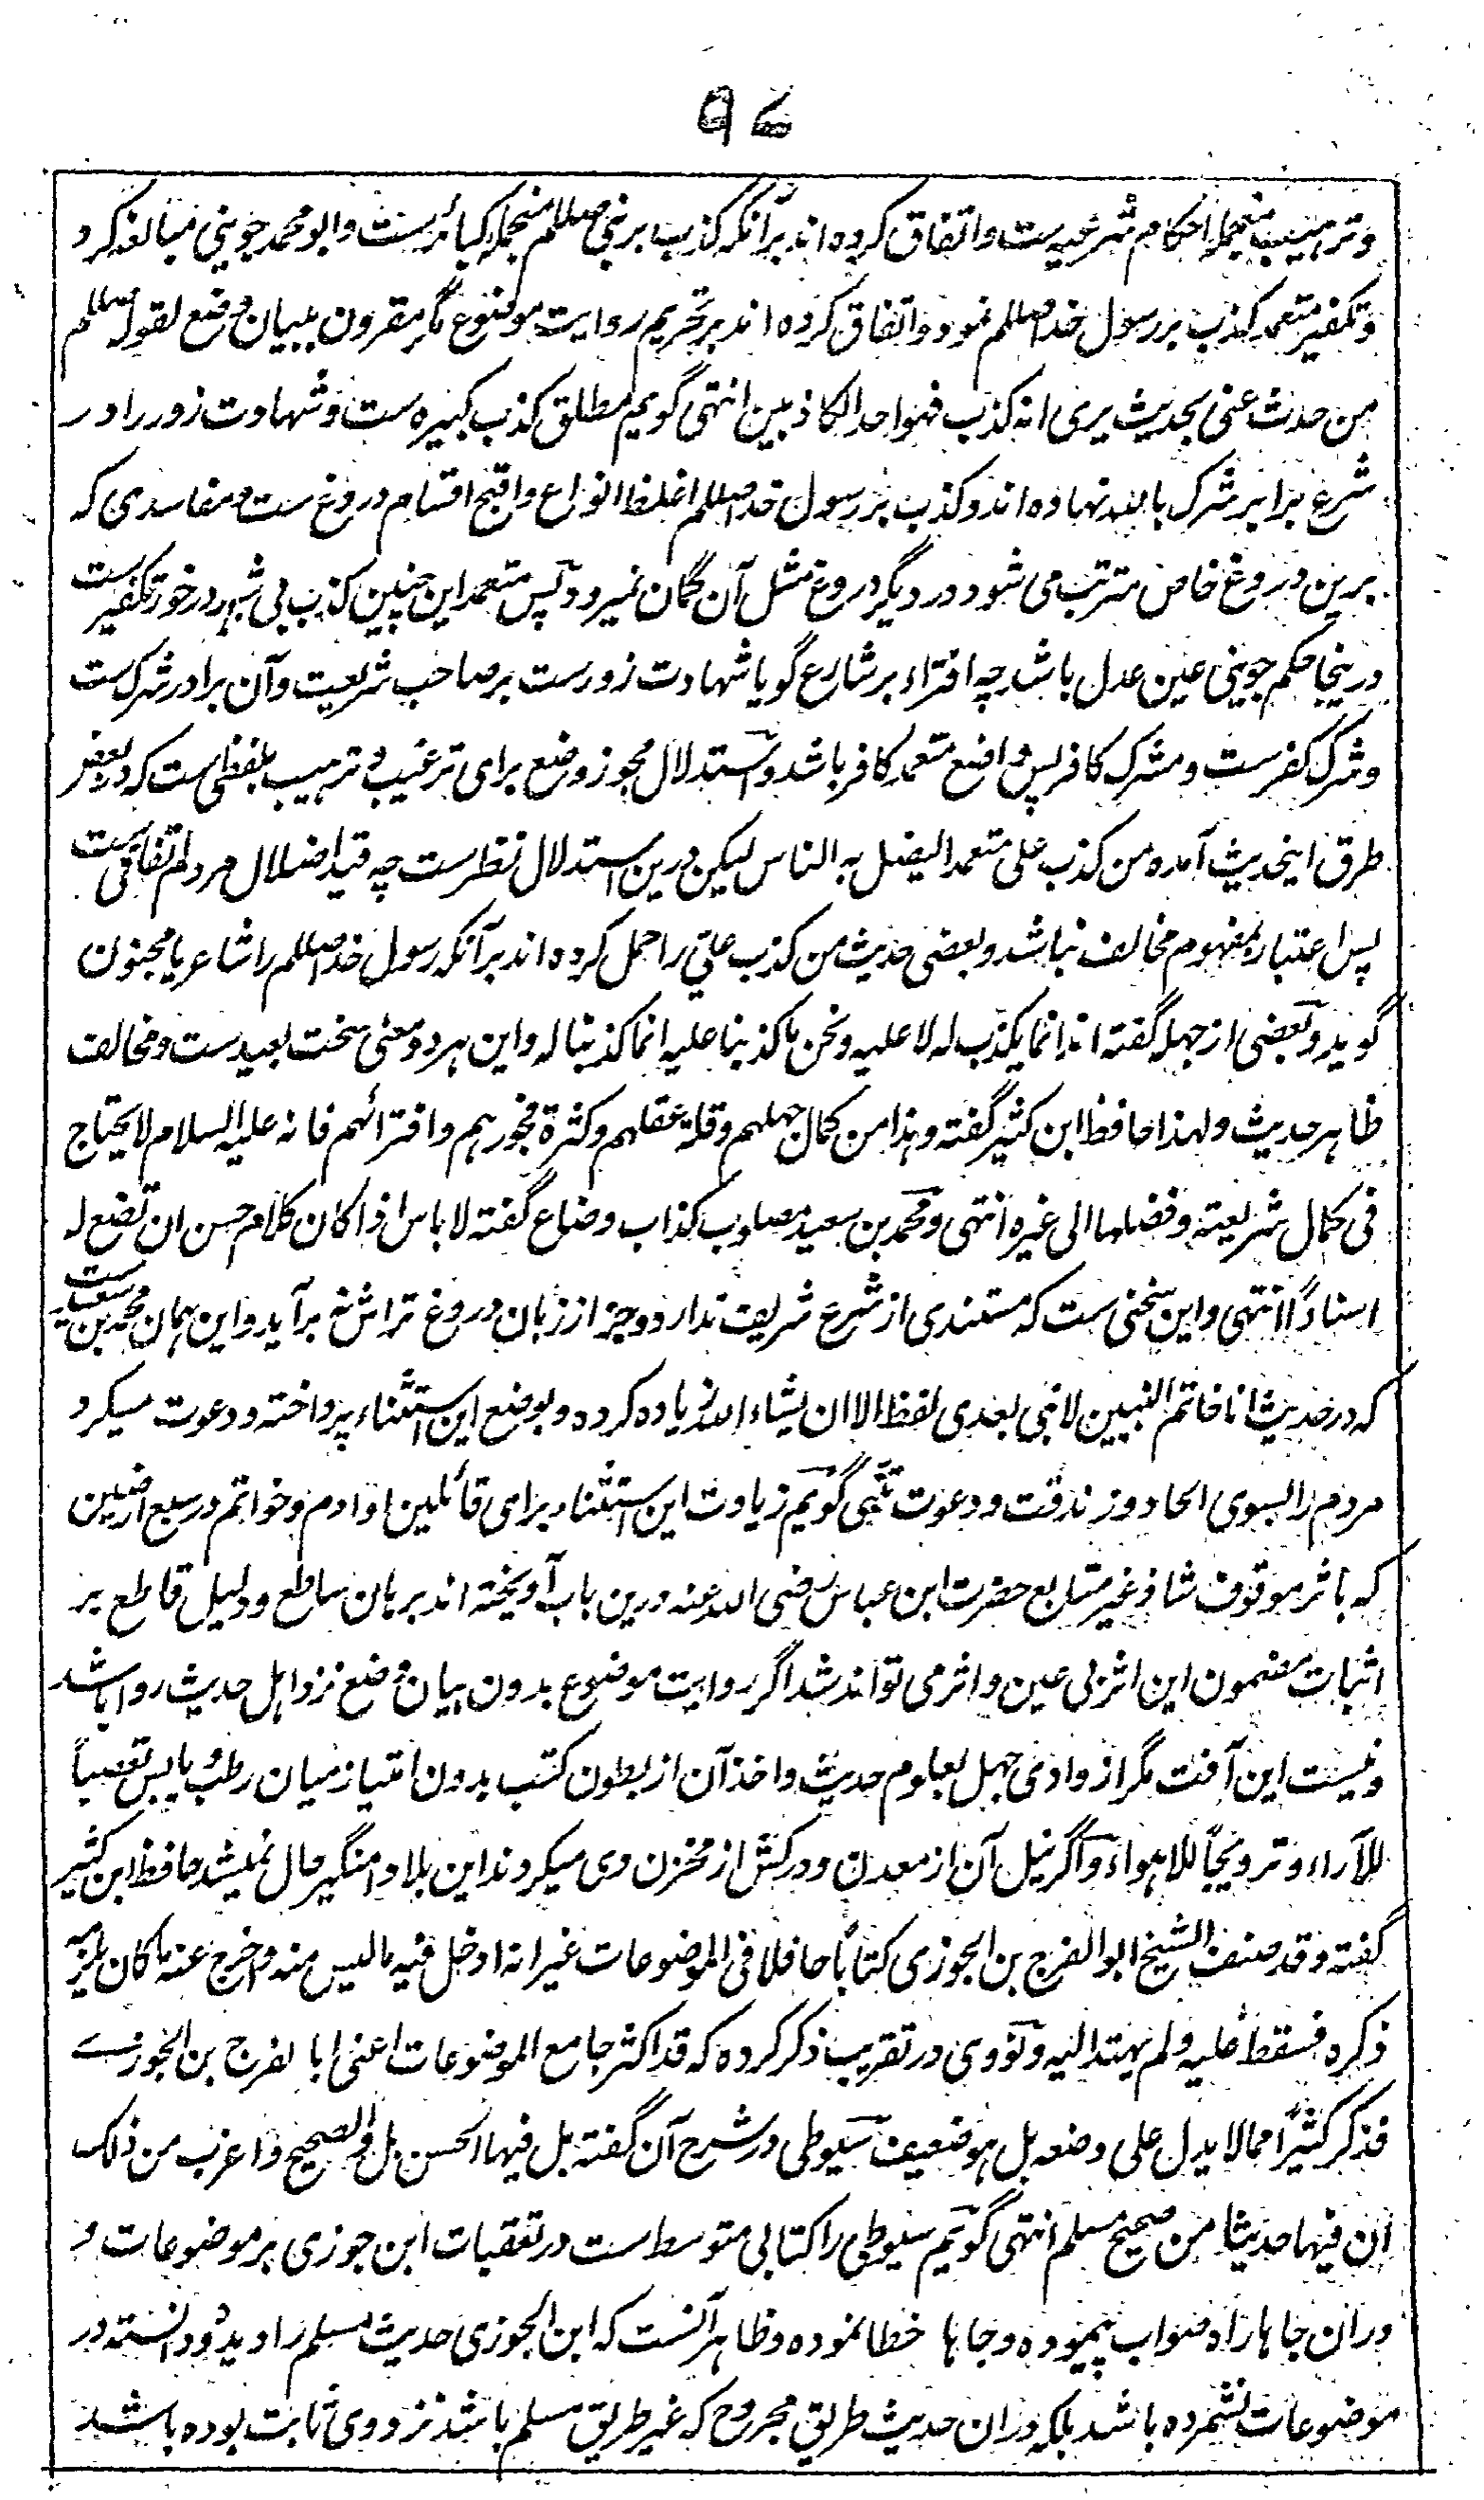 ۹۷
وترہیب منجملہ احکام شرعیہ ست واتفاق کردہ اند برآنکہ کذب بر نبی صللم منجملہ کبائرست وابو محمد جوینی مبالغہ کرد
وتکفیر متعمد کذب بر رسول خدا صللم نمود واتفاق کردہ اند بر تحریم روایت موضوع مگر مقرون ببیان وضع لقولہ صللم
من حدث عنی بحدیث یری انہ کذب فہو احد الکاذبین انتہی گویم مطلق کذب کبیرہ ست وشہادت زور را در
شرع برابر شرک باللہ نہادہ اند وکذب بر رسول خدا صللم اغلظ انواع واقبح اقسام دروغ ست ومفاسدی کہ
برین دروغ خاص مترتب می شود در دیگر دروغ مثل آن گمان نمیرود پس متعمد این چنین کذب بی شبہہ درخور تکفیرست
درینجا حکم جوینی عین عدل باشد چہ افتراء بر شارع گویا شہادت زورست بر صاحب شریعت وآن برادر شرک ست
وشرک کفرست ومشرک کافر پس واضع متعمد کافر باشد واستدلال مجوز وضع برای ترغیب وترہیب بلفظی ست کہ در بعض
طرق اینحدیث آمدہ من کذب علی متعمدا لیضل بہ الناس لیکن درین استدلال نظرست چہ قید اضلال مردم اتفاقی ست
پس اعتبار مفہوم مخالف نباشد وبعضی حدیث من کذب علی را حمل کردہ اند برآنکہ رسول خدا صللم را شاعر یا مجنون
گوید وبعضی از جہلہ گفتہ اند انما یکذب لہ لا علیہ ونحن ما کذبنا علیہ انما کذبنا لہ واین ہر دو معنی سخت بعیدست ومخالف
ظاہر حدیث ولہذا حافظ ابن کثیر گفتہ وہذا من کمال جہلہم وقلۃ عقلہم وکثرۃ فجورہم وافترائہم فانہ علیہ السلام لا یحتاج
فی کمال شریعتہ وفضلہا الی غیرہ انتہی ومحمد بن سعید مصلوب کذاب وضاع گفتہ لا باس اذا کان کلام حسن ان تضع لہ
اسنادًا انتہی واین سخنی ست کہ مستندی از شرع شریف ندارد وجز از زبان دروغ تراش نح برآید واین ہمان محمد بن سعید ست
کہ در حدیث انا خاتم النبیین لا نبی بعدی لفظ الا ان یشاء اللہ زیادہ کردہ وبوضع این استثناء پرداختہ ودعوت میکرد
مردم را بسوی الحاد وزندقت ودعوت تنبی گویم زیادت این استثناء برای قائلین اوادم وخواتم در سبع ارضین
کہ باثر موقوف شاذ غیر متابع حضرت ابن عباس رضی اللہ عنہ درین باب آویختہ اند برہان ساطع ودلیل قاطع بر
اثبات مضمون این اثر بی عین واثر می تواند شد اگر روایت موضوع بدون بیان وضع نزد اہل حدیث روا باشد
ونیست این آفت مگر از وادی جہل بعلوم حدیث واخذ آن از بطون کتب بدون امتیاز میان رطب ویابس تعصباً
للآراء وترویجاً للاہواء واگر نیل آن از معدن ودرکش از مخزن وی میکردند این بلا دامنگیر حال نمیشد حافظ ابن کثیر
گفتہ وقد صنف الشیخ ابو الفرج بن الجوزی کتاباً حافلا فی الموضوعات غیر انہ ادخل فیہ ما لیس منہ واخرج عنہ ما کان یلزمہ
ذکرہ فسقط علیہ ولم یہتد الیہ ونووی در تقریب ذکر کردہ کہ قد اکثر جامع الموضوعات اعنی ابا لفرج بن الجوزے
فذکر کثیرًا مما لا یدل علی وضعہ بل ہو ضعیف سیوطی در شرح آن گفتہ بل فیہا الحسن بل والصحیح واغرب من ذلک
ان فیہا حدیثا من صحیح مسلم انتہی گویم سیوطی را کتابی متوسط ست در تعقبات ابن جوزی بر موضوعات و
دران جاہا راہ صواب پیمودہ وجاہا خطا نمودہ وظاہر آنست کہ ابن الجوزی حدیث مسلم را دیدہ ودانستہ در
موضوعات نشمردہ باشد بلکہ دران حدیث طریق مجروح کہ غیر طریق مسلم باشد نزد وی ثابت بودہ باشد